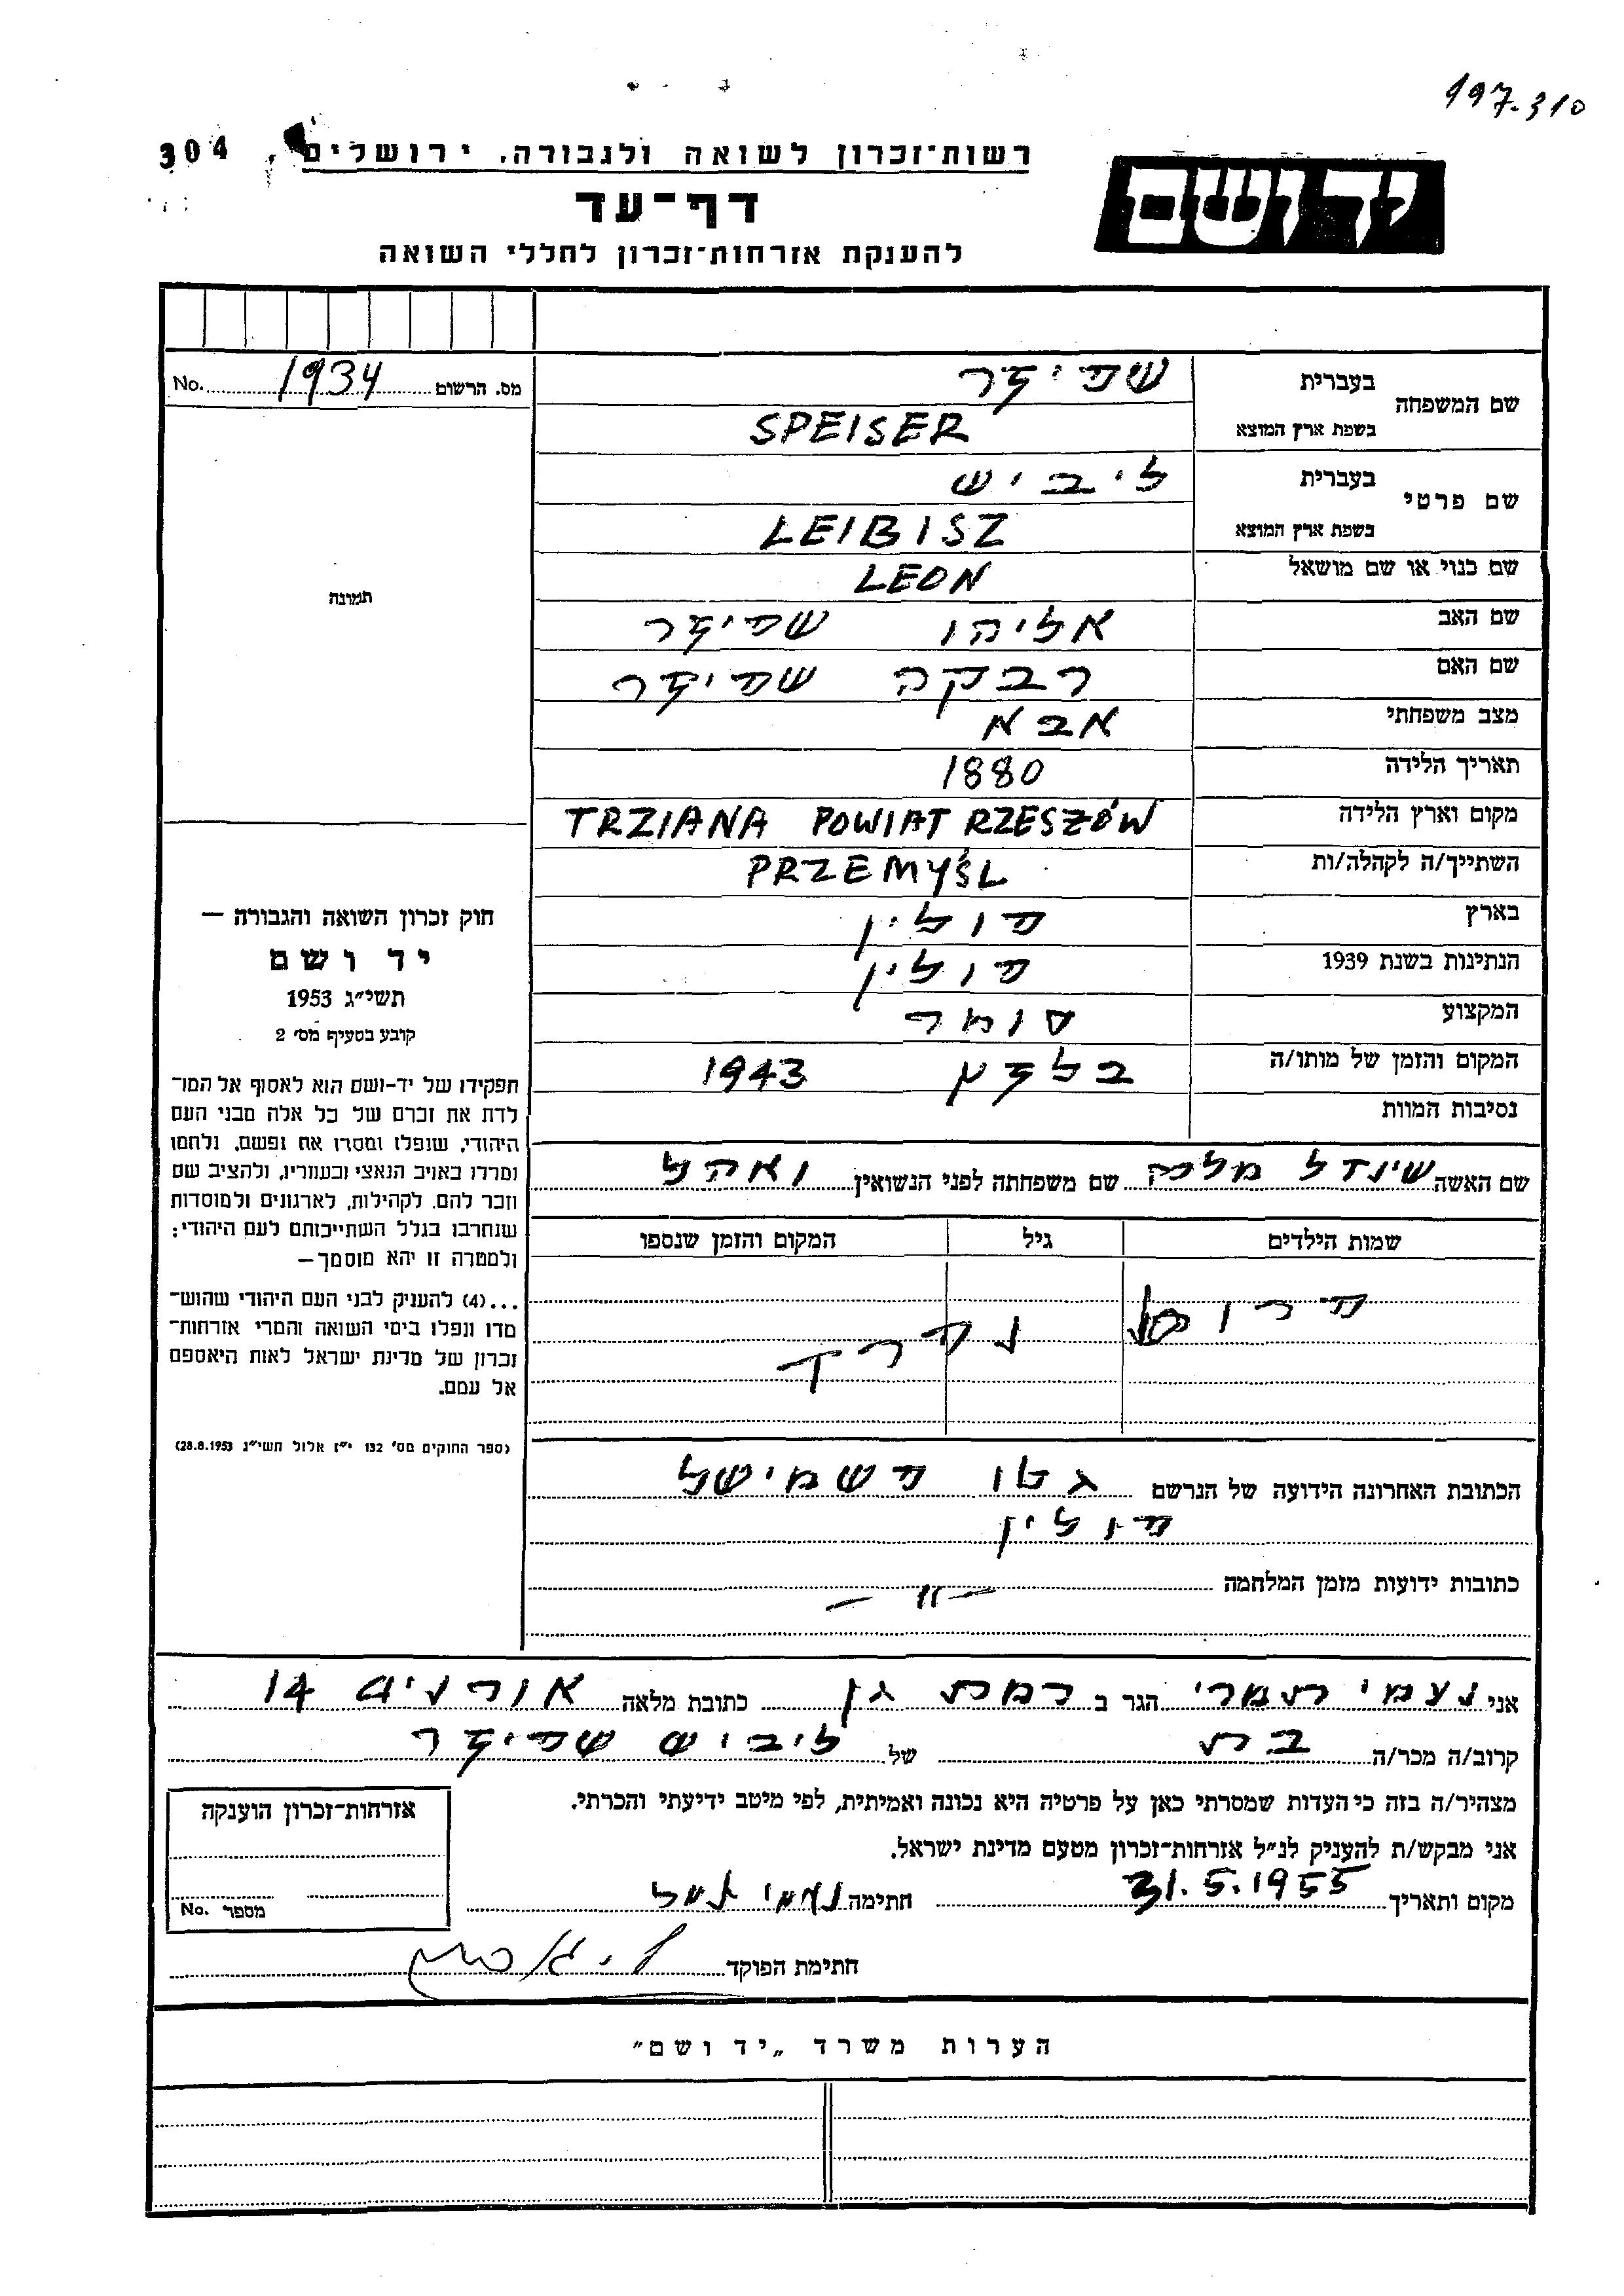 197.310
304
רשות־זכרון לשואה ולגבורה, ירושלים
יד ושם
דף־עד
להענקת אזרחות־זכרון לחללי השואה
מס. הרשום 1934 No.
תמונה
שם המשפחה
בעברית שפיזר
בשפת ארץ המוצא SPEISER
שם פרטי
בעברית ליביש
בשפת ארץ המוצא LEIBISZ
שם כנוי או שם מושאל LEON
שם האב אליהו שפיזר
שם האם רבקה שפיזר
מצב משפחתי אבא
תאריך הלידה 1880
מקום וארץ הלידה TRZIANA POWIAT RZESZÓW
השתייך/ה לקהלה/ות PRZEMYŚL
בארץ פולין
הנתינות בשנת 1939 פולין
המקצוע סוחר
המקום והזמן של מותו/ה בלזץ 1943
נסיבות המוות
שם האשה שינדל מלכה שם משפחתה לפני הנשואין ואהל
שמות הילדים גיל המקום והזמן שנספו
נפרד
הכתובת האחרונה הידועה של הנרשם גטו פשמישל
פולין
כתובות ידועות מזמן המלחמה — " —
חוק זכרון השואה והגבורה —
יד ושם
תשי״ג 1953
קובע בסעיף מס׳ 2
תפקידו של יד-ושם הוא לאסוף אל המו־
לדת את זכרם של כל אלה מבני העם
היהודי, שנפלו ומסרו את נפשם, נלחמו
ומרדו באויב הנאצי ובעוזריו, ולהציב שם
וזכר להם, לקהילות, לארגונים ולמוסדות
שנחרבו בגלל השתייכותם לעם היהודי;
ולמטרה זו יהא מוסמך—
...(4) להעניק לבני העם היהודי שהוש־
מדו ונפלו בימי השואה והמרי אזרחות־
זכרון של מדינת ישראל לאות היאספם
אל עמם.
(ספר החוקים מס׳ 132 י״ז אלול תשי״ג 28.8.1953)
אני נעמי תמרי הגר ב רמת גן כתובת מלאה אורנים 14
קרוב/ה מכר/ה בת של ליביש שפיזר
מצהיר/ה בזה כי העדות שמסרתי כאן על פרטיה היא נכונה ואמיתית, לפי מיטב ידיעתי והכרתי.
אני מבקש/ת להעניק לנ״ל אזרחות־זכרון מטעם מדינת ישראל.
מקום ותאריך 31.5.1955 חתימה נעמי
חתימת הפוקד
אזרחות־זכרון הוענקה
מספר No.
הערות משרד „יד ושם״